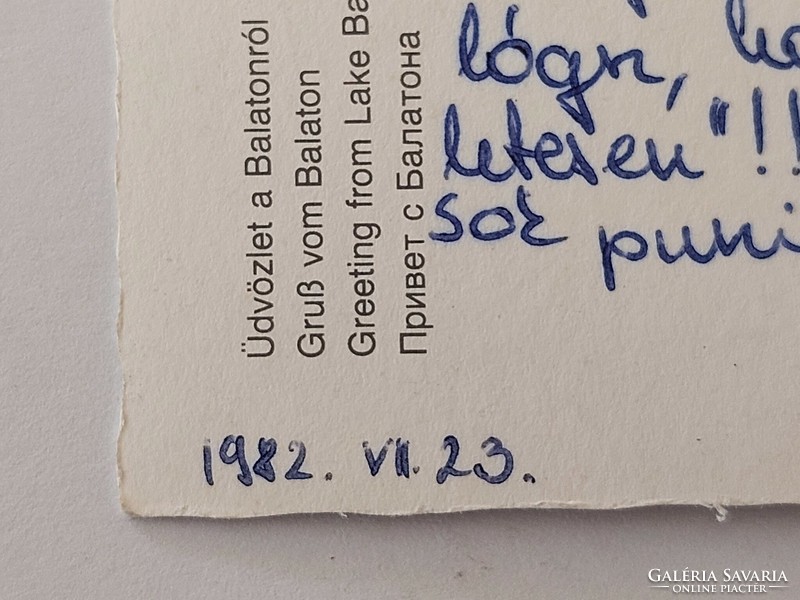 Üdvözlet a Balatonról
Gruß vom Balaton
Greeting from Lake Ba
Привет с Балатона
lógsz,
"!!
sok puni
1982. VII. 23.
GALÉRIA SAVARIA
ONLINE PIACTÉR